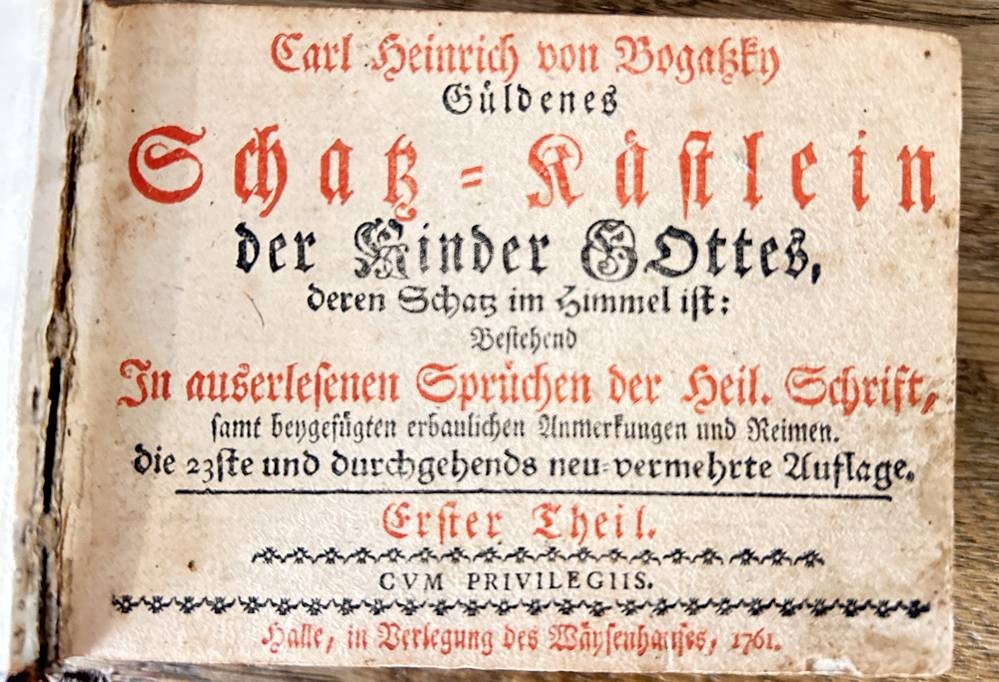 Carl Heinrich von Bogatzky
Güldenes
Schatz-Kästlein
der Kinder GOttes,
deren Schatz im Himmel ist:
Bestehend
In auserlesenen Sprüchen der Heil. Schrift,
samt beygefügten erbaulichen Anmerkungen und Reimen.
die 23ste und durchgehends neu-vermehrte Auflage.
Erster Theil.
CVM PRIVILEGIIS.
Halle, in Verlegung des Wäysenhauses, 1761.